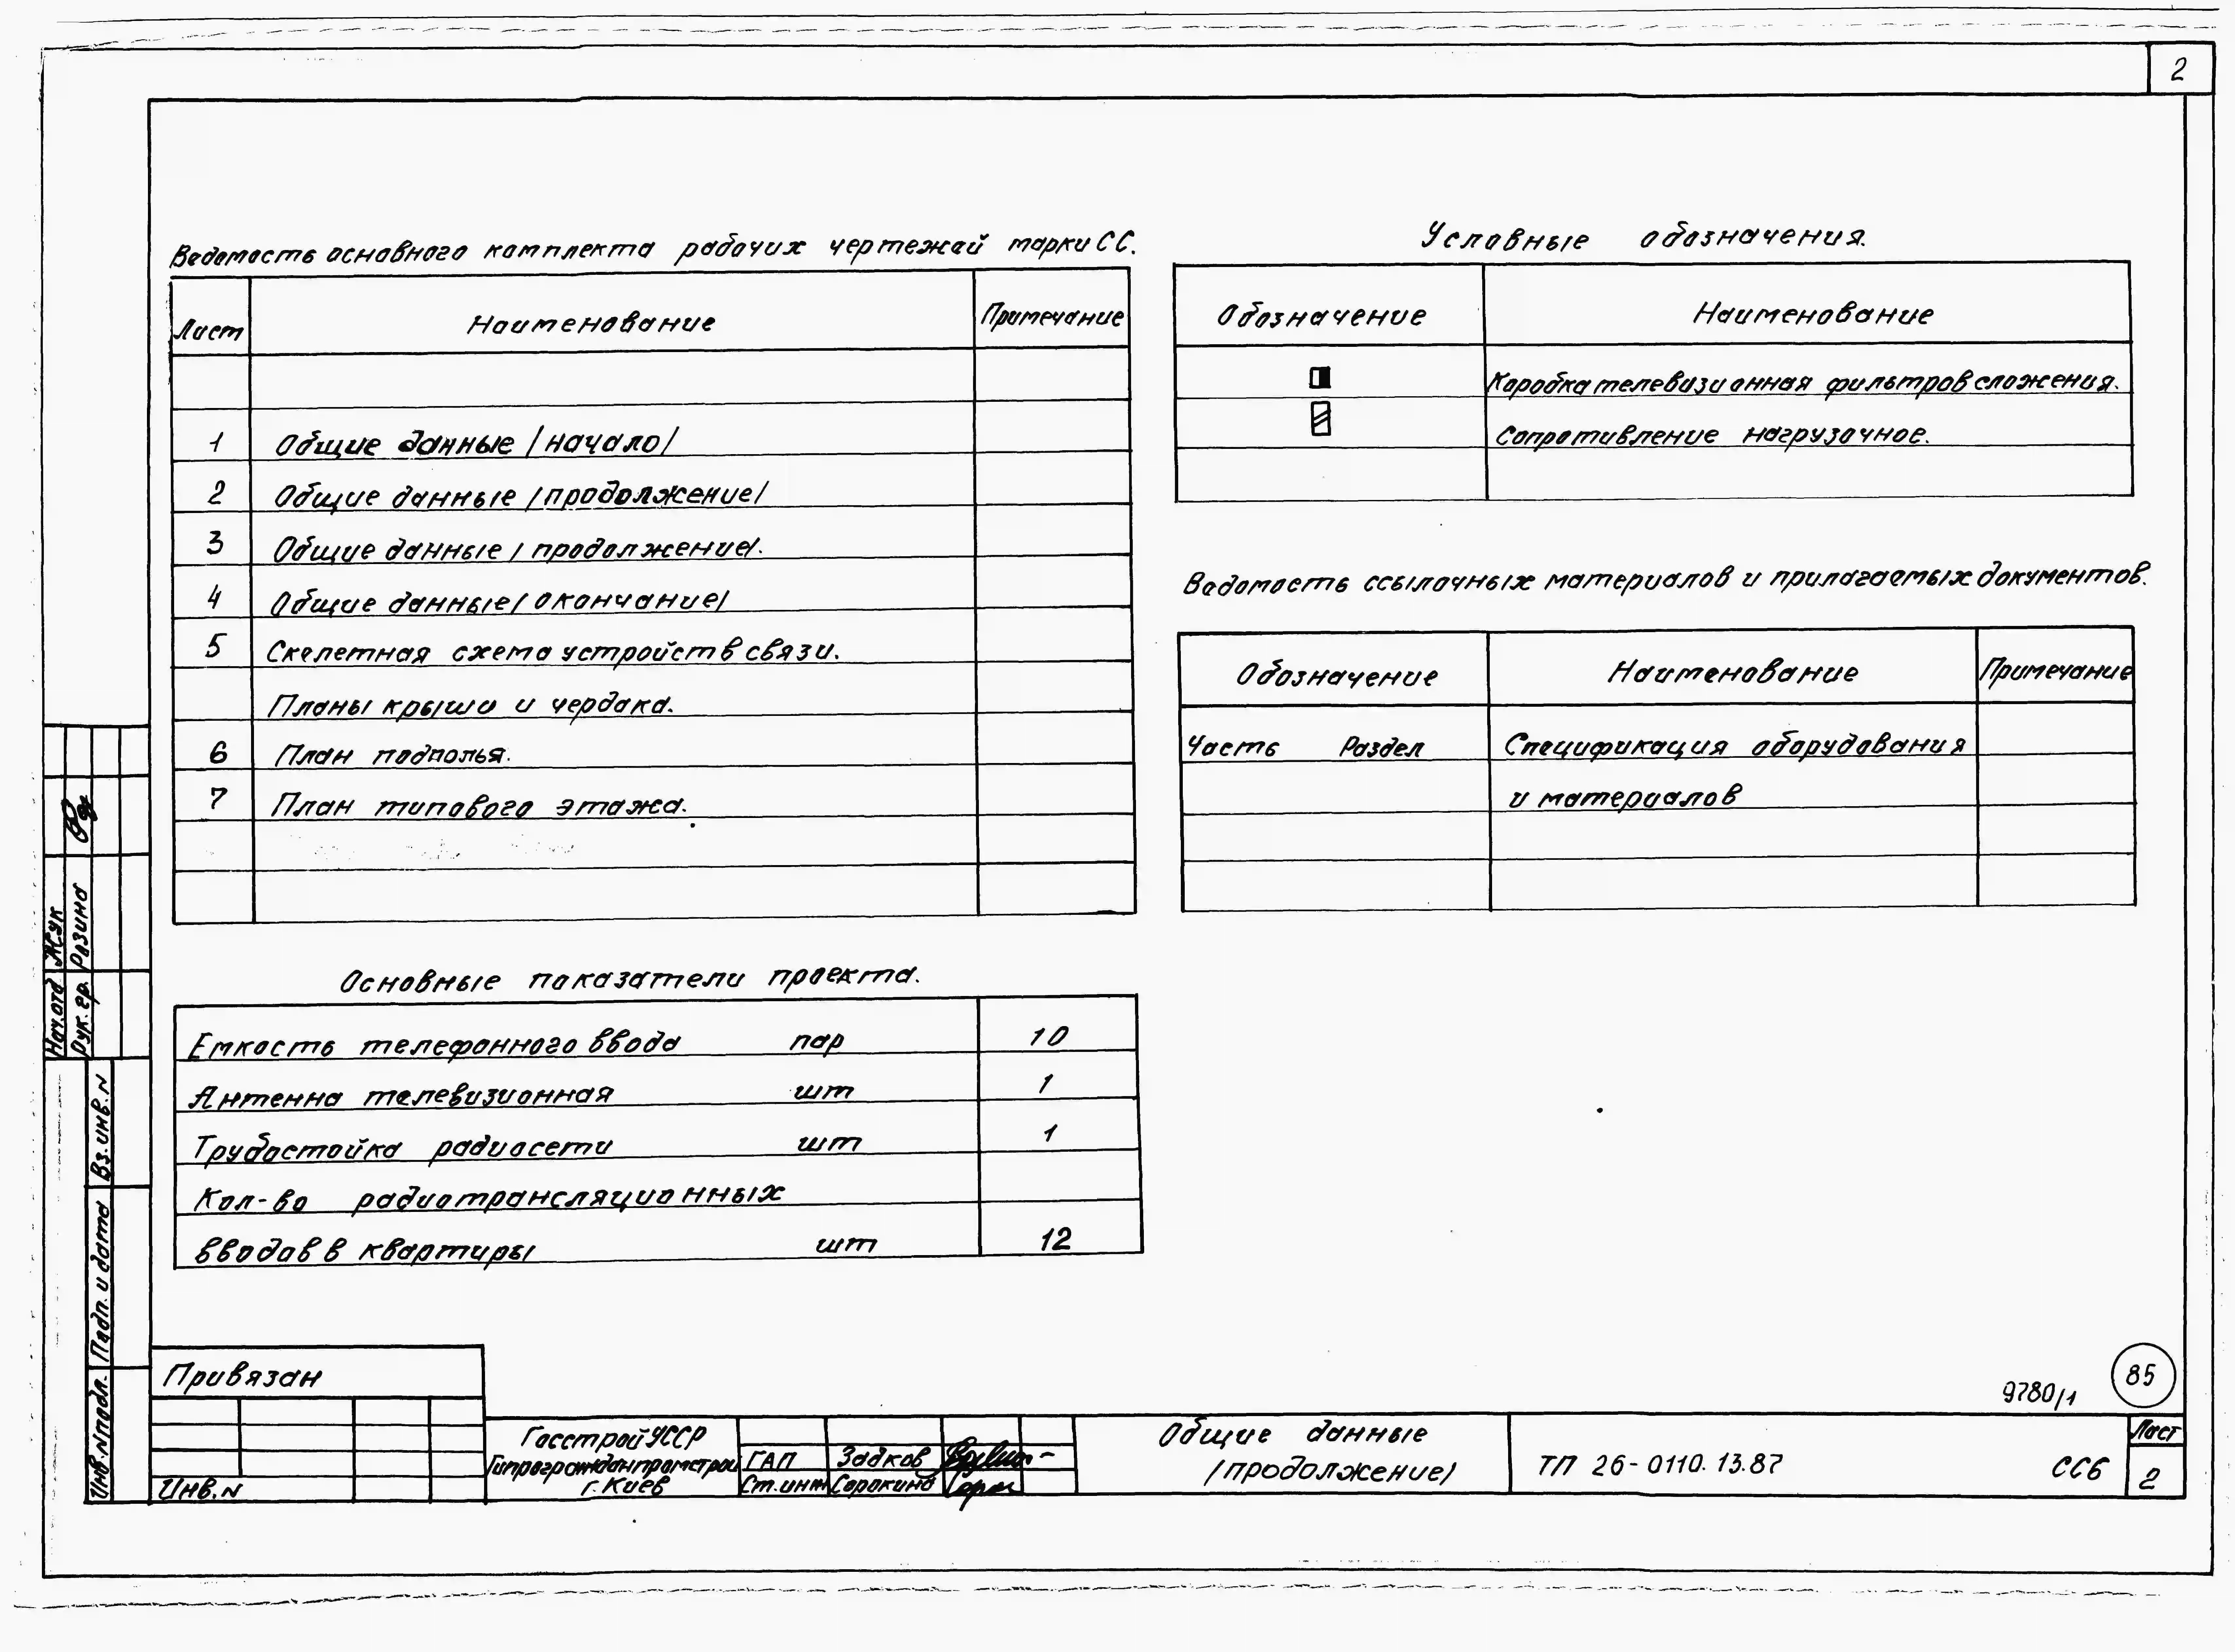 2
Ведомость основного комплекта рабочих чертежей марки СС.
Лист Наименование Примечание
1 Общие данные /начало/
2 Общие данные /продолжение/
3 Общие данные /продолжение/.
4 Общие данные /окончание/
5 Скелетная схема устройств связи.
Планы крыши и чердака.
6 План подполья.
7 План типового этажа.
Основные показатели проекта.
Емкость телефонного ввода пар 10
Антенна телевизионная шт 1
Трубостойка радиосети шт 1
Кол-во радиотрансляционных
вводов в квартиры шт 12
Условные обозначения.
Обозначение Наименование
Коробка телевизионная фильтров сложения.
Сопротивление нагрузочное.
Ведомость ссылочных материалов и прилагаемых документов.
Обозначение Наименование Примечание
Часть Раздел Спецификация оборудования
и материалов
Нач.отд Жук
Рук.гр. Разина
Вз.инв.N
Подп. и дата
Инв.Nподл.
Привязан
Инв.N
Госстрой УССР
Гипрогражданпромстрой
г. Киев
ГАП Задков
Ст.инж Сорокина
Общие данные
/продолжение/
9780/1
85
ТП 26-0110.13.87 СС6
Лист
2